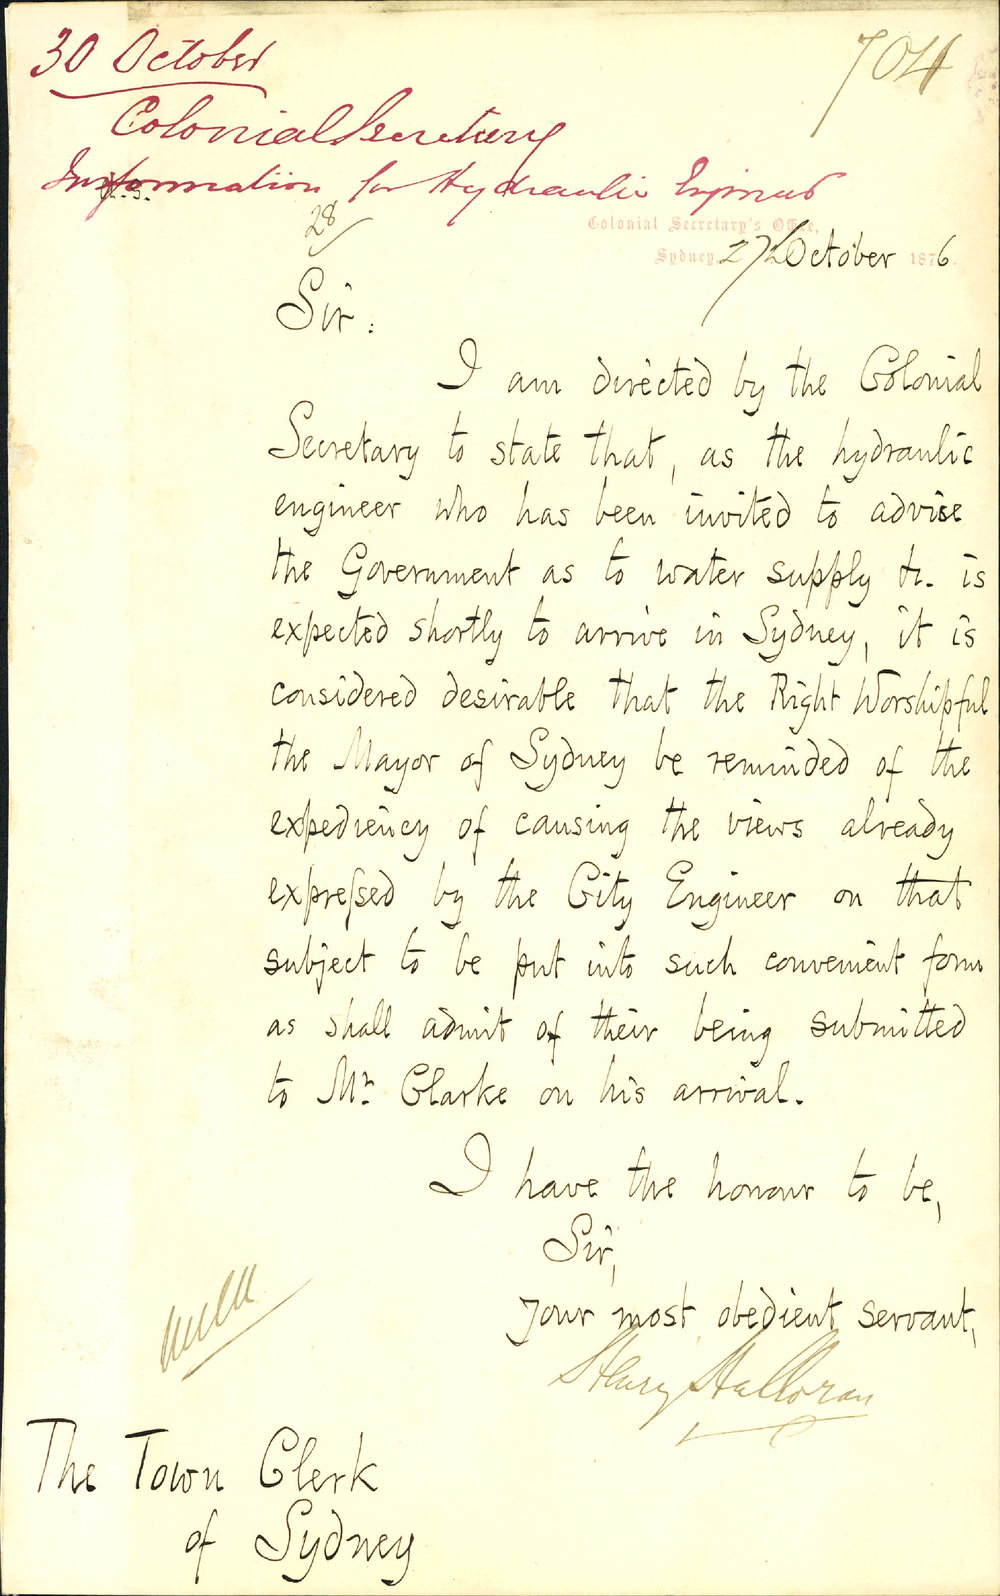 30 October
704
Colonial Secretary
Information for Hydraulic Engineer
28
Colonial Secretary's Office,
Sydney, 27th October 1876.
Sir:
I am directed by the Colonial
Secretary to state that, as the hydraulic
engineer who has been invited to advise
the Government as to water supply &c. is
expected shortly to arrive in Sydney, it is
considered desirable that the Right Worshipful
the Mayor of Sydney be reminded of the
expediency of causing the views already
expressed by the City Engineer on that
subject to be put into such convenient form
as shall admit of their being submitted
to Mr. Clarke on his arrival.
I have the honour to be,
Sir,
Your most obedient servant,
Henry Halloran
The Town Clerk
of Sydney